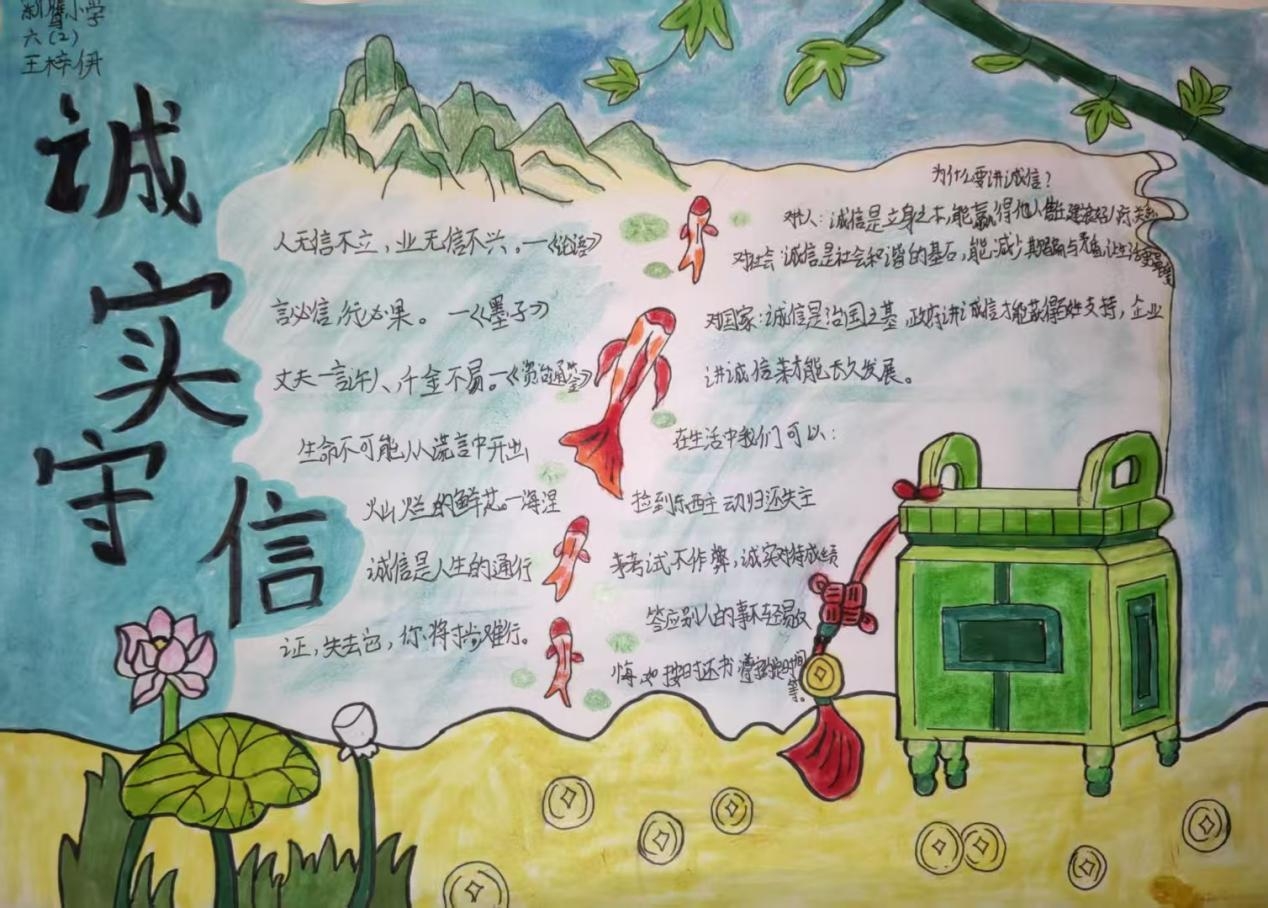 小学
六(2)
王梓伊
诚
实
守
信
人无信不立,业无信不兴。—《论语》
言必信,行必果。—《墨子》
丈夫一言许人、千金不易。—《资治通鉴》
生命不可能从谎言中开出
灿烂的鲜花—海涅
诚信是人生的通行
证,失去它,你将寸步难行。
为什么要讲诚信?
对人:诚信是立身之本,能赢得他人
对社会:诚信是社会和谐的基石,能减少
对国家:诚信是治国之基,政府讲诚信才能获得百姓支持,企业
讲诚信才能长久发展。
在生活中我们可以:
捡到东西主动归还失主
考试不作弊,诚实对待成绩
答应别人的事不轻易反
悔,如按时还书,时间
等。